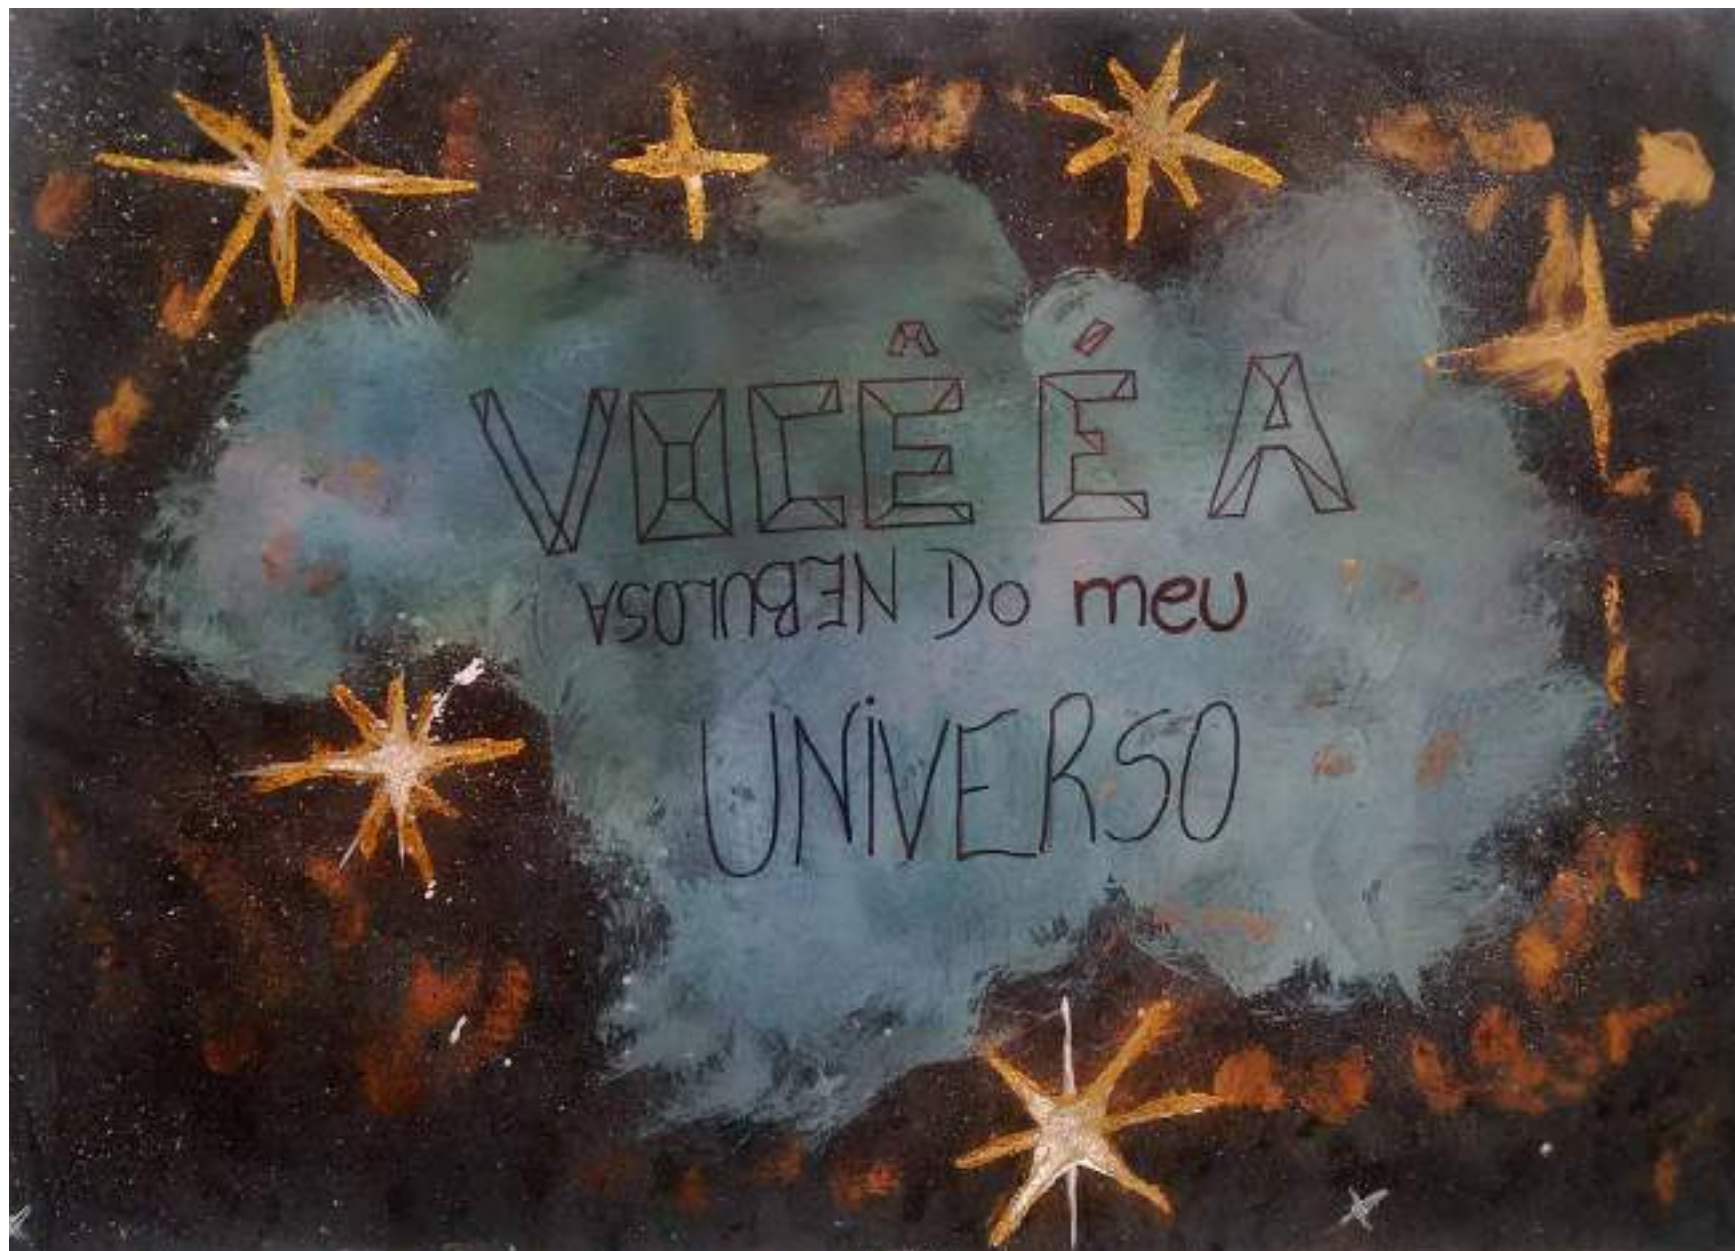 VOCÊ É A
NEBULOSA DO meu
UNiVERSO